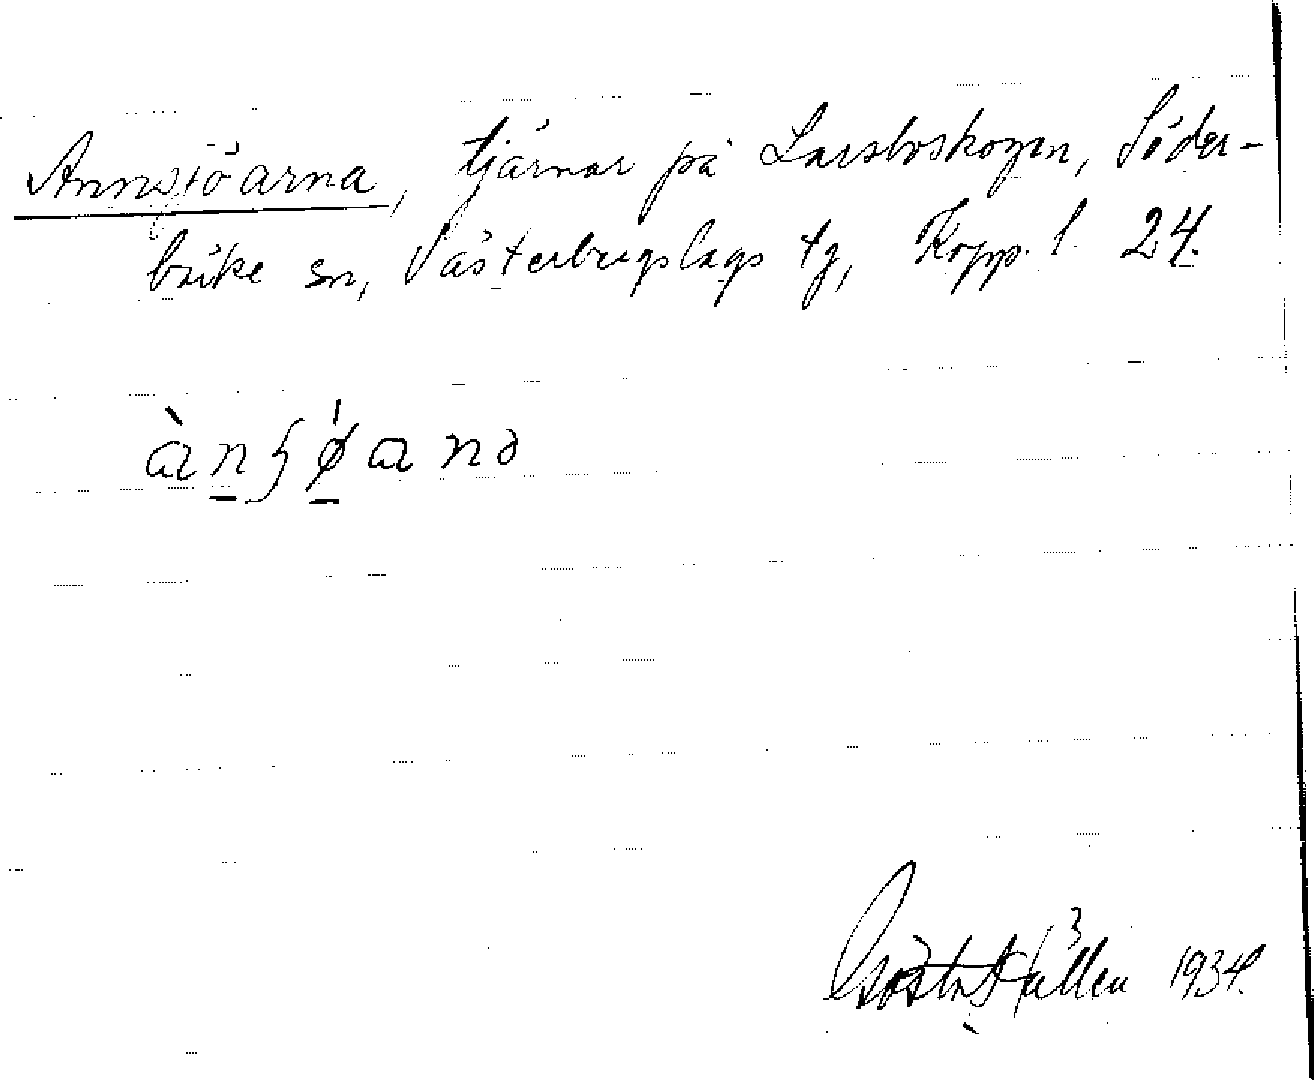 Annsjöarna, tjärnar på Larsboskogen, Söder-
bärke sn, Västerbergslags tg, Kopp. l. 24.
Gösta Källén 1934.